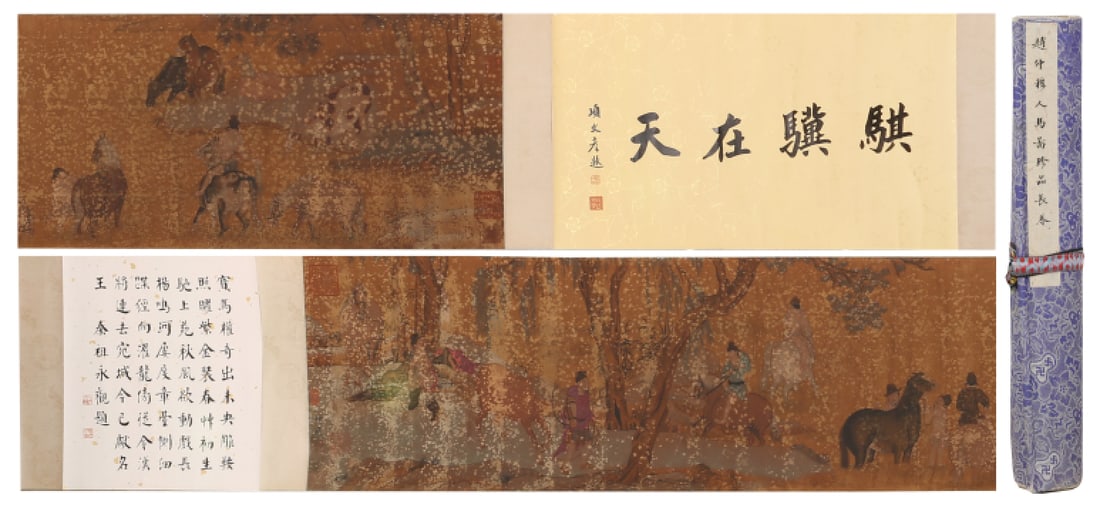 騏驥在天
項文彥題
寶馬權奇出未央雕鞍
照曜紫金裝春草初生
馳上苑秋風欲動戲長
楊鳴珂屢度章臺側細
蹀經向濯龍傍從令漢
將連去宛城今已獻名
王 秦祖永觀題
趙仲穆人馬圖珍品長卷